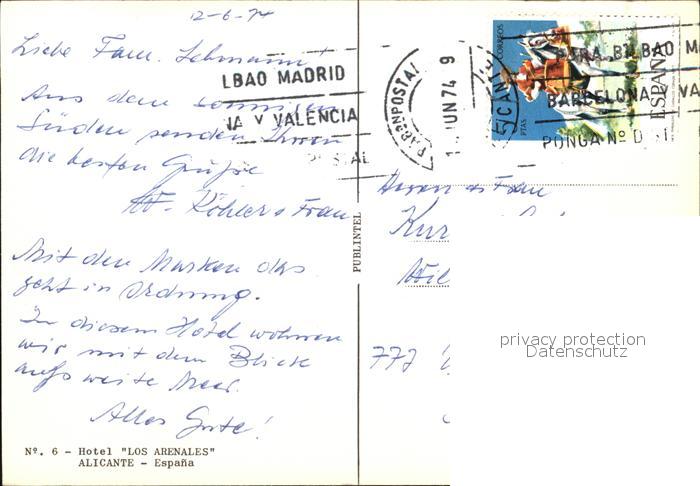 12-6-74
Liebe Fam. Lehmann
Aus dem sonnigen
Süden senden Ihnen
die besten Grüße
W. Köhler & Frau
Mit den Marken das
geht in Ordnung.
In diesem Hotel wohnen
wir mit dem Blick
aufs weite Meer.
Alles Gute!
Nº. 6 - Hotel "LOS ARENALES"
ALICANTE - España
PUBLINTEL
LBAO MADRID
NA Y VALENCIA
POSTAL
JUN 74 9
CORREOS
5 PTAS
ESPAÑA
PARA BILBAO M
BARCELONA VA
PONGA Nº D
Herrn & Frau
Kur
Wil
777
privacy protection
Datenschutz